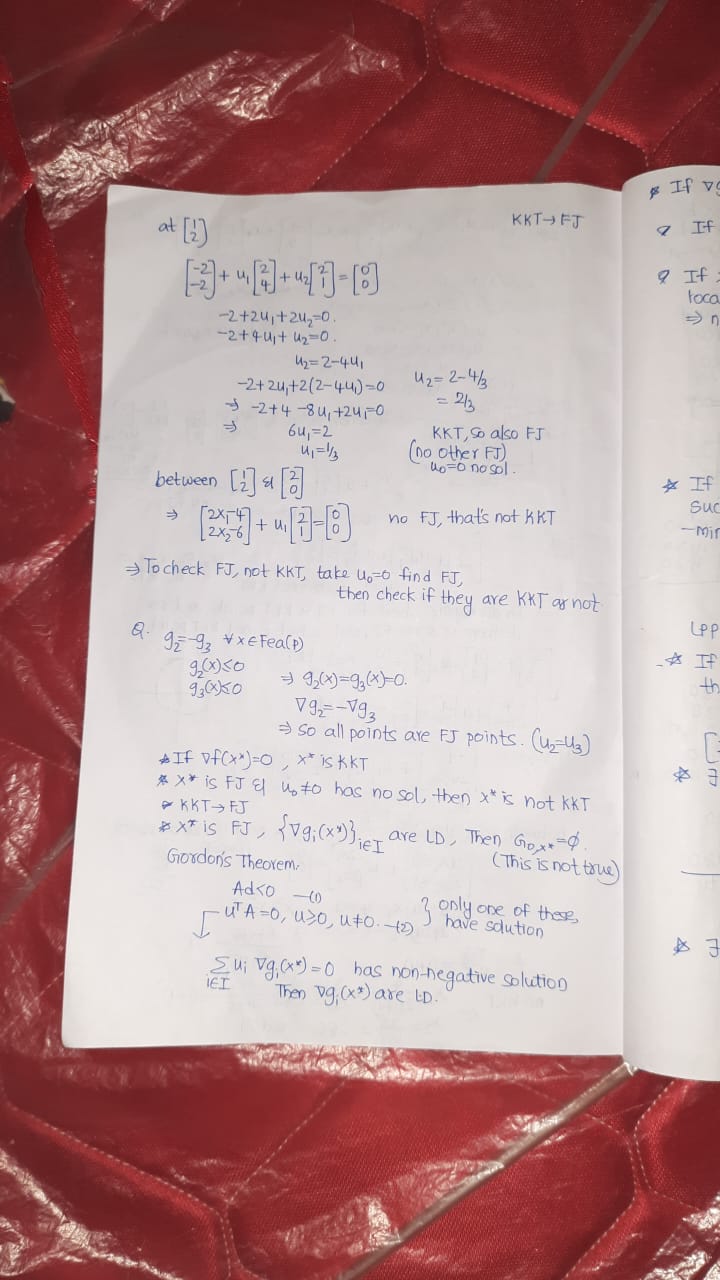 KKT→FJ
at [1 2]
[-2 -2] + u₁[2 4] + u₂[2 1] = [0 0]
-2+2u₁+2u₂=0.
-2+4u₁+u₂=0.
u₂=2-4u₁
-2+2u₁+2(2-4u₁)=0
u₂=2-4/3
⇒ -2+4-8u₁+2u₁=0
= 2/3
⇒ 6u₁=2
u₁=1/3
KKT, so also FJ
(no other FJ)
u₀=0 no sol.
between [1 2] & [2 0]
⇒ [2x₁-4 2x₂-6] + u₁[2 1] = [0 0] no FJ, that's not KKT
⇒ To check FJ, not KKT, take u₀=0 find FJ,
then check if they are KKT or not
Q. g₂=-g₃ ∀x∈Fea(p)
g₂(x)≤0
g₃(x)≤0 ⇒ g₂(x)=g₃(x)=0.
∇g₂=-∇g₃
⇒ so all points are FJ points. (u₂=u₃)
* If ∇f(x*)=0, x* is KKT
* x* is FJ & u₀≠0 has no sol, then x* is not KKT
* KKT→FJ
* x* is FJ, {∇gᵢ(x*)}ᵢ∈I are LD, Then G₀,ₓ*=∅.
(This is not true)
Gordon's Theorem.
Ad<0 —(1)
uᵀA=0, u≥0, u≠0. —(2)
} only one of these have solution
Σᵢ∈I uᵢ ∇gᵢ(x*)=0 has non-negative solution
Then ∇gᵢ(x*) are LD.
* If ∇g
If
If
loca
⇒ n
* If
suc
-min
LPP
* If
th
* ∃
* ∃